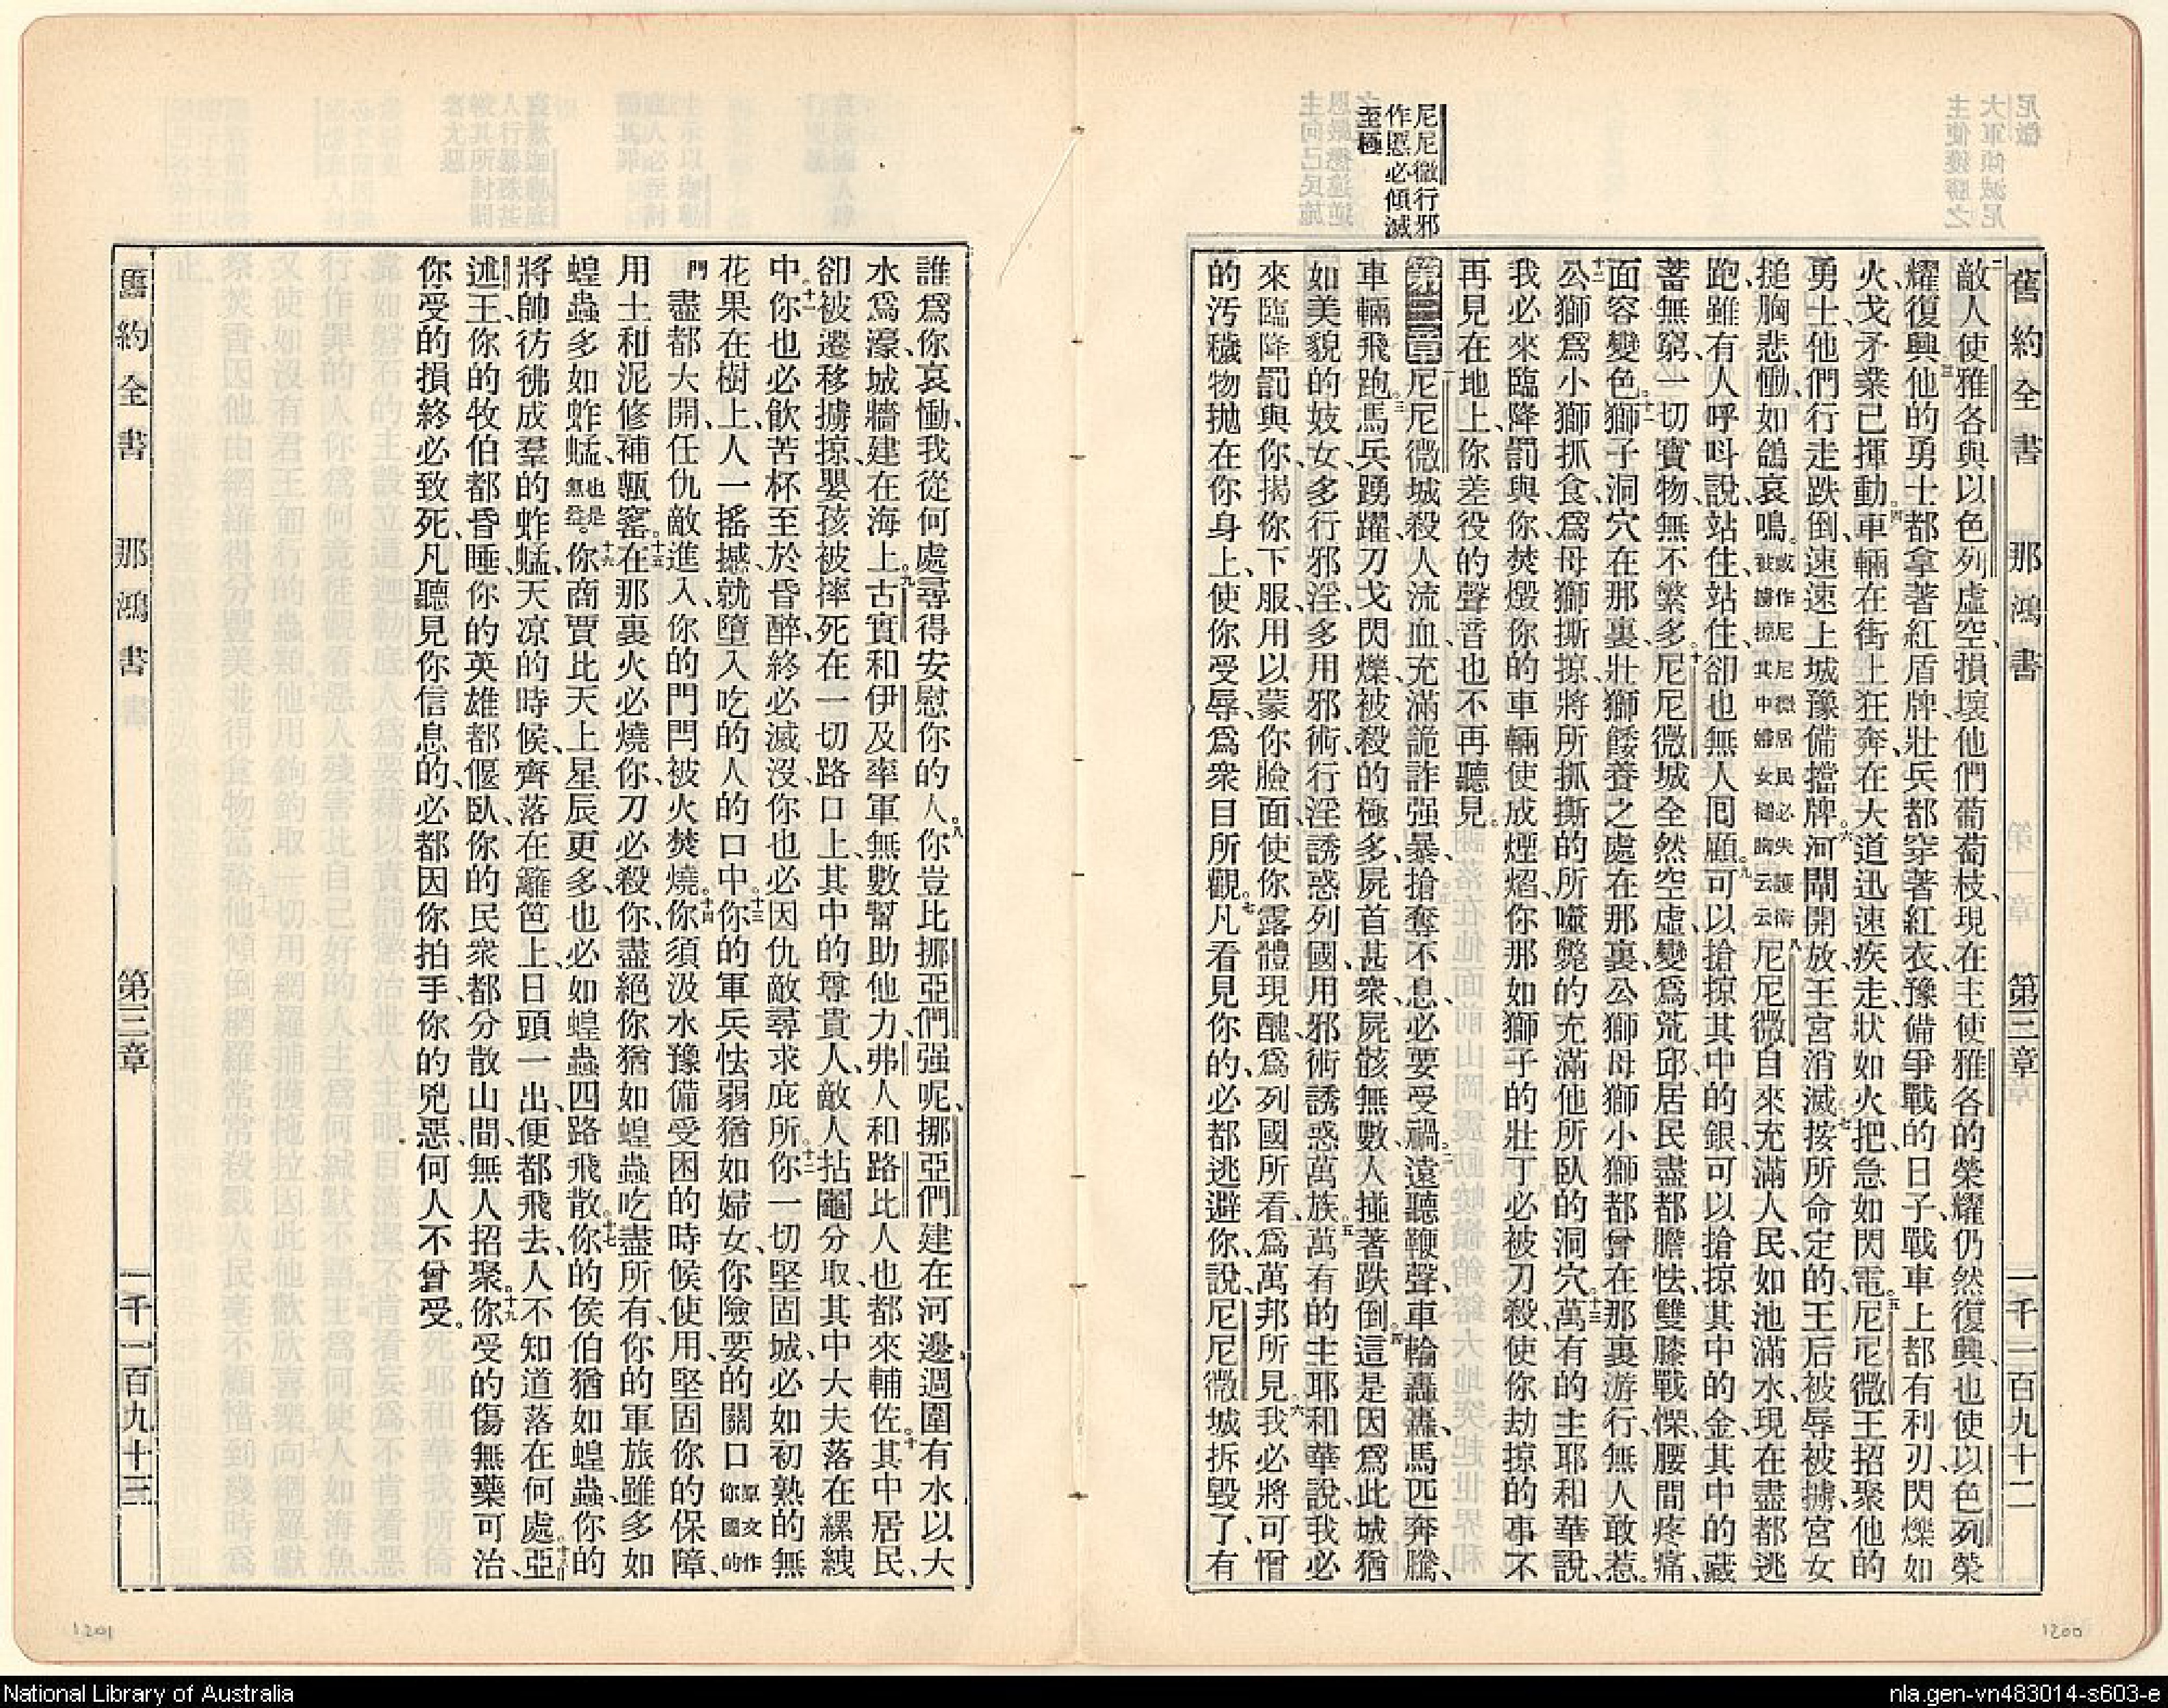 舊約全書 那鴻書 第三章 一千一百九十二
敵人使雅各與以色列虛空、損壞他們葡萄枝、現在主使雅各的榮耀仍然復興、也使以色列榮
耀復興、他的勇士都拿著紅盾牌、壯兵都穿著紅衣、豫備爭戰的日子、戰車上都有利刃、閃爍如
火、戈矛業已揮動。四車輛在街上狂奔、在大道迅速疾走、狀如火把、急如閃電。五尼尼微王招聚他的
勇士、他們行走跌倒、速速上城豫備擋牌。六河閘開放、王宮消滅。七按所命定的、王后被辱被擄、宮女
搥胸悲慟、如鴿哀鳴。或作尼尼微居民必失護衛被擄掠其中婦女搥胸云云八尼尼微自來充滿人民、如池滿水、現在盡都逃
跑、雖有人呼呌說、站住、站住、卻也無人囘顧。九可以搶掠其中的銀、可以搶掠其中的金、其中的藏
蓄無窮、一切寶物、無不繁多。十尼尼微城全然空虛、變爲荒邱、居民盡都膽怯、雙膝戰慄、腰間疼痛、
面容變色。十一獅子洞穴在那裏、壯獅餧養之處在那裏、公獅母獅小獅都曾在那裏游行、無人敢惹。
十二公獅爲小獅抓食、爲母獅撕掠、將所抓撕的所噬斃的、充滿他所臥的洞穴。十三萬有的主耶和華說、
我必來臨降罰與你、焚燬你的車輛、使成煙熖、你那如獅子的壯丁、必被刀殺、使你劫掠的事、不
再見在地上、你差役的聲音也不再聽見。
尼尼微行邪
作惡必傾滅
至極
第三章一尼尼微城殺人流血、充滿詭詐强暴、搶奪不息、必要受禍。二遠聽鞭聲、車輪轟轟、馬匹奔騰、
車輛飛跑。三馬兵踴躍、刀戈閃爍、被殺的極多、屍首甚衆、屍骸無數、人掽著跌倒。四這是因爲此城猶
如美貌的妓女、多行邪淫、多用邪術、行淫誘惑列國、用邪術誘惑萬族。五萬有的主耶和華說、我必
來臨降罰與你、揭你下服、用以蒙你臉面、使你露體現醜、爲列國所看、爲萬邦所見。六我必將可憎
的汚穢物抛在你身上、使你受辱、爲衆目所觀。七凡看見你的、必都逃避你、說、尼尼微城拆毀了、有
誰爲你哀慟、我從何處尋得安慰你的人。八你豈比挪亞們强呢、挪亞們建在河邊、週圍有水、以大
水爲濠、城牆建在海上。九古實和伊及率軍無數幫助他力、弗人和路比人也都來輔佐。十其中居民、
卻被遷移擄掠、嬰孩被摔死在一切路口上、其中的尊貴人、敵人拈鬮分取、其中大夫落在縲絏
中。十一你也必飲苦杯、至於昏醉、終必滅沒、你也必因仇敵尋求庇所。十二你一切堅固城、必如初熟的無
花果在樹上、人一搖撼、就墮入吃的人的口中。十三你的軍兵怯弱猶如婦女、你險要的關口原文作你國的
門盡都大開、任仇敵進入、你的門閂被火焚燒。十四你須汲水豫備受困的時候使用、堅固你的保障、
用土和泥修補甎窰。十五在那裏火必燒你、刀必殺你、盡絕你猶如蝗蟲吃盡所有、你的軍旅雖多如
蝗蟲、多如蚱蜢、也是無益。十六你商賈比天上星辰更多、也必如蝗蟲四路飛散。十七你的侯伯猶如蝗蟲、你的
將帥彷彿成羣的蚱蜢、天凉的時候、齊落在籬笆上、日頭一出、便都飛去、人不知道落在何處。十八亞
述王、你的牧伯都昏睡、你的英雄都偃臥、你的民衆都分散山間、無人招聚。十九你受的傷無藥可治、
你受的損終必致死、凡聽見你信息的、必都因你拍手、你的兇惡何人不曾受。
舊約全書 那鴻書 第三章 一千一百九十三
1201
1200
National Library of Australia
nla.gen-vn483014-s603-e